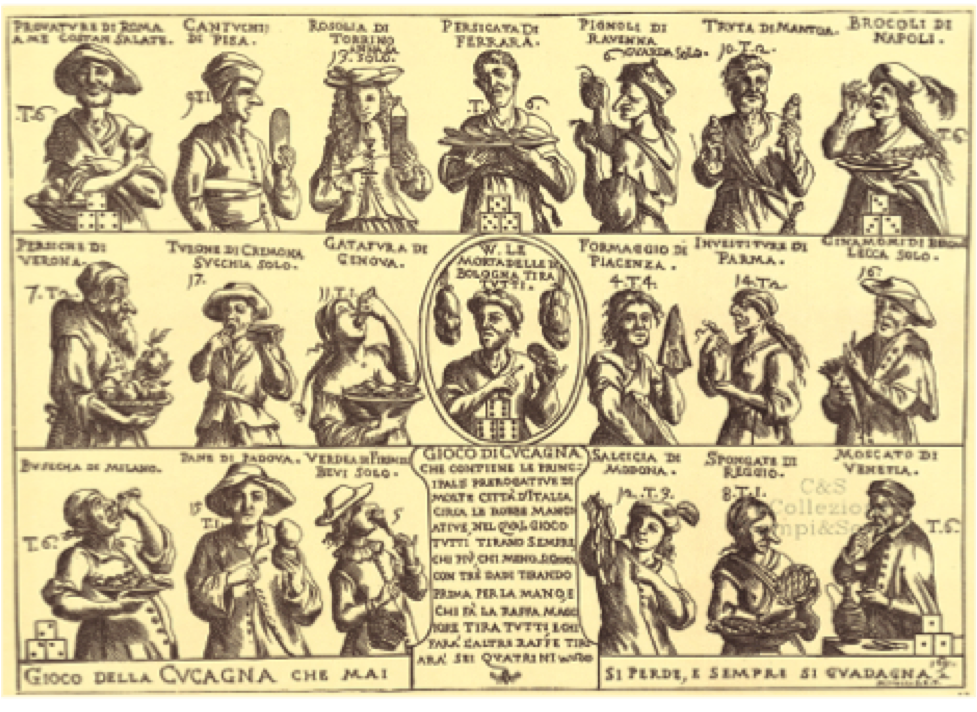 PROVATURE DI ROMA
A ME COSTAN SALATE.
T.6
CANTUCHII
DI PISA.
9.T.1
ROSOLIA DI
TORRINO
ANNASA
13. SOLO.
PERSICATA DI
FERRARA.
.T. 6.
PIGNOLI DI
RAVENNA
6 GUARDA SOLO.
TRUTA DI MANTOA.
10.T.2.
BROCOLI DI
NAPOLI.
T.6.
PERSICHE DI
VERONA.
7.T.2
TURONE DI CREMONA
SUCCHIA SOLO.
17.
GATAFURA DI
GENOVA.
11.T.1.
W. LE
MORTADELLE DI
BOLOGNA TIRA
TVTTI.
FORMAGGIO DI
PIACENZA.
4.T.4.
INVESTITURE DI
PARMA.
14.T.2.
LECCA SOLO.
16.
BUSECHA DI MILANO.
T.6.
PANE DI PADOVA.
15
T.1.
VERDEA DI
BEVI SOLO.
5
GIOCO DI CVCAGNA
CHE CONTIENE LE PRINC-
IPALI PREROGATIVE DI
MOLTE CITTÀ D'ITALIA
CIRCA LE ROBBE MANGI
ATIVE, NEL QVAL GIOCO
TVTTI TIRANO SEMPRE
CHI PIÙ, CHI MENO,
CON TRÈ DADI TIRANDO
PRIMA PER LA MANO, E
CHI FÀ LA RAFFA MAGG
IORE TIRA TVTTI E CHI
FARÀ L'ALTRE RAFFE TIR-
ARÀ SEI QVATRINI
SALCICIA DI
MODONA.
12.T.3.
SPONGATE DI
REGGIO.
8.T.1.
MOSCATO DI
VENETIA.
T.6.
C&S
Collezio
mpi&S
GIOCO DELLA CVCAGNA CHE MAI
SI PERDE, E SEMPRE SI GUADAGNA